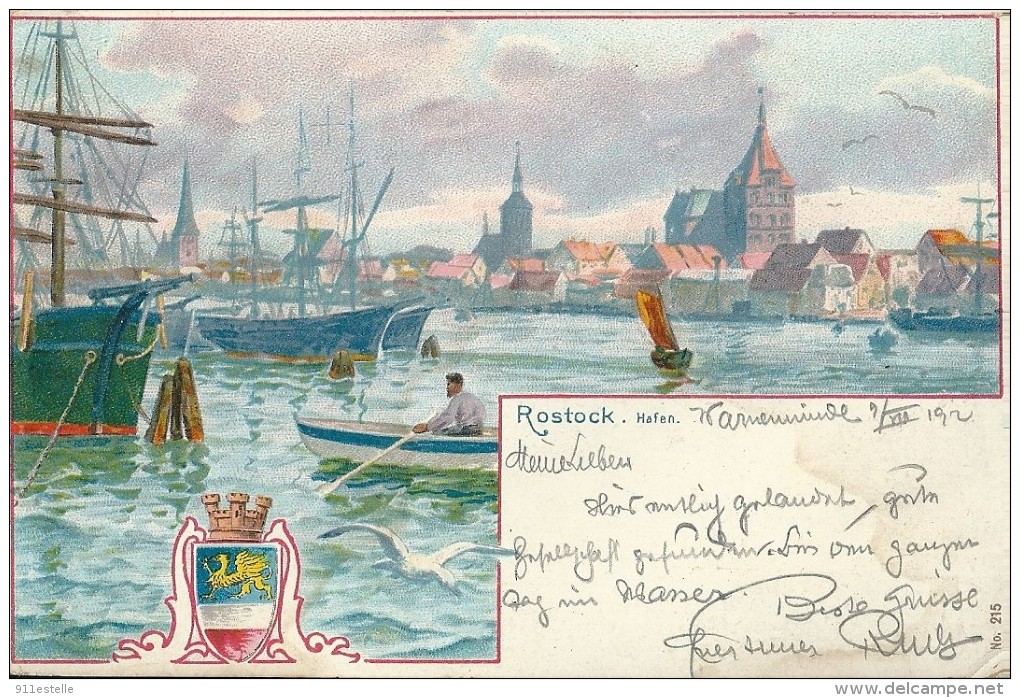 Rostock. Hafen. Warnemünde 9/VIII 192
Meine Lieben
Hier endlich gelandet, gute
Gesellschaft gefunden. Bin den ganzen
Tag im Wasser.
Beste Grüsse
No. 215
911estelle
www.delcampe.net